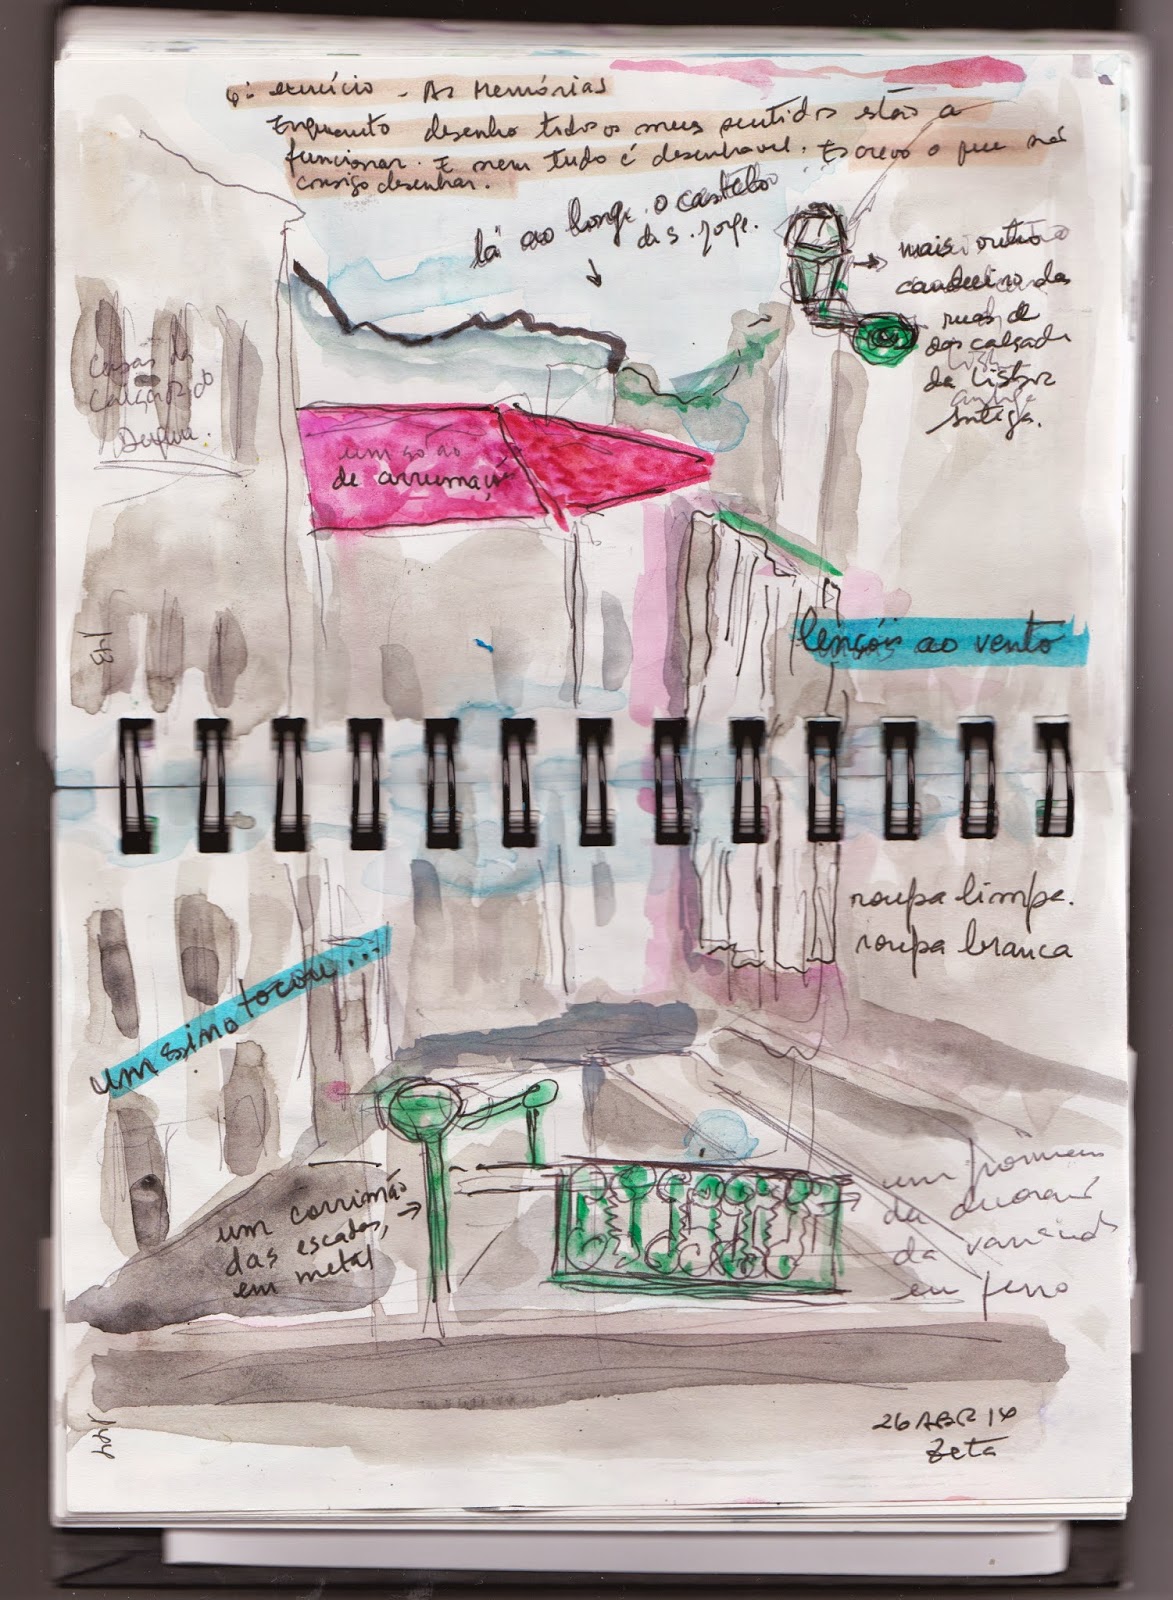 6º exercício - As Memórias
Enquanto desenho todos os meus sentidos estão a
funcionar. E nem tudo é desenhavel. Escrevo o que não
consigo desenhar.
lá ao longe o castelo
de S. Jorge.
mais outro
candeeiro das
ruas de
calçada
da
antiga.
Casas da
Calçada do
Duque.
de arruma
143
lençóis ao vento
roupa limpa.
roupa branca
um sino tocou...
um corrimão
das escadas,
em metal
um
da
da varanda
em ferro
26 ABR 14
Zeta
144